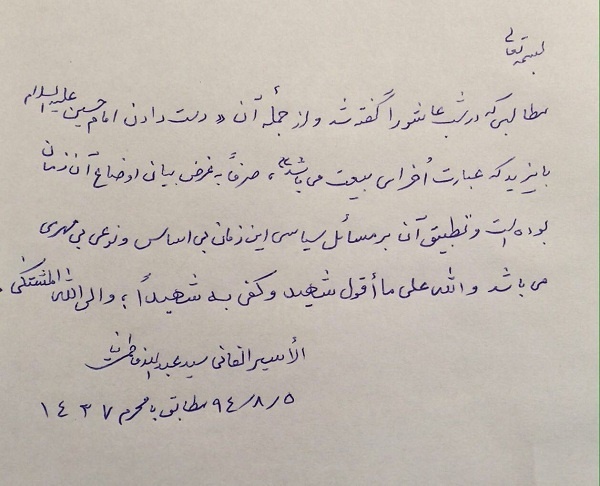 بسمه تعالی
مطالبی که در شب عاشورا گفته شد و از جمله آن « دست دادن امام حسین علیه السلام
با یزید که عبارت اُخرای بیعت می باشد» ، صرفاً به غرض بیان اوضاع آن زمان
بوده است و تطبیق آن بر مسائل سیاسی این زمان بی اساس و نوعی بی مهری
می باشد والله علی ما أقول شهید وکفی به شهیداً ، والی الله المشتکی .
الأسیر الفانی سید عبدالله فاطمی نیا
۹٤/۸/۵ مطابق با محرم ۱٤۳۷